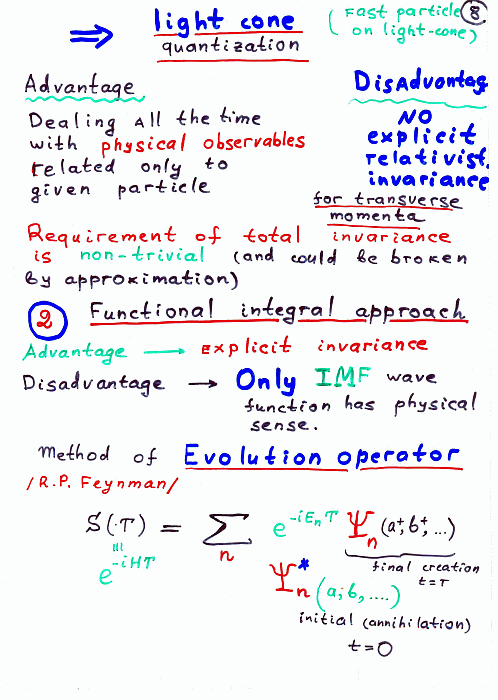 ⇒ light cone (Fast particle 8
quantization on light-cone)
Advantage
Dealing all the time
with physical observables
related only to
given particle
Disadvantag
NO
explicit
relativist.
invariance
for transverse
momenta
Requirement of total invariance
is non-trivial (and could be broken
by approximation)
2 Functional integral approach
Advantage → explicit invariance
Disadvantage → Only IMF wave
function has physical
sense.
Method of Evolution operator
/R.P. Feynman/
S(T) = ∑ₙ e^{-iEₙT} Ψₙ(a⁺,b⁺,...)
≡ e^{-iHT}
final creation
t=T
Ψₙ*(a,b,....)
initial (annihilation)
t=0